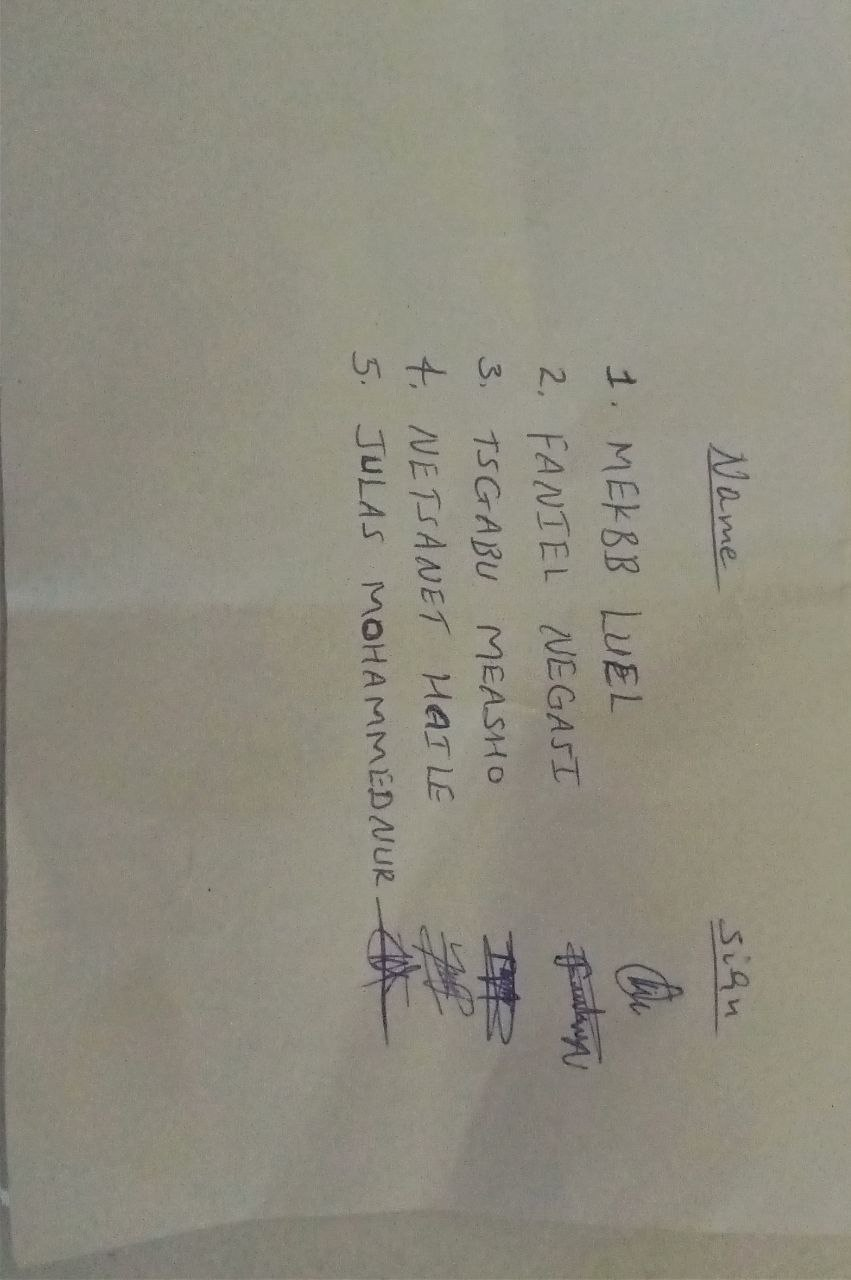 Name Sign
1. MEKBB LUEL
2. FANIEL NEGASI
3. TSGABU MEASHO
4. NETSANET HAILE
5. JULAS MOHAMMEDNUR